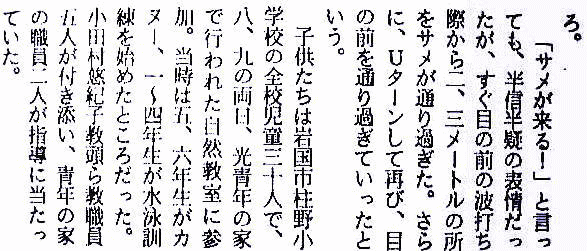 ろ。
「サメが来る！」と言っ
ても、半信半疑の表情だっ
たが、すぐ目の前の波打ち
際から二、三メートルの所
をサメが通り過ぎた。さら
に、Uターンして再び、目
の前を通り過ぎていったと
いう。
子供たちは岩国市柱野小
学校の全校児童三十人で、
八、九の両日、光青年の家
で行われた自然教室に参
加。当時は五、六年生がカ
ヌー、一～四年生が水泳訓
練を始めたところだった。
小田村悠紀子教頭ら教職員
五人が付き添い、青年の家
の職員二人が指導に当たっ
ていた。